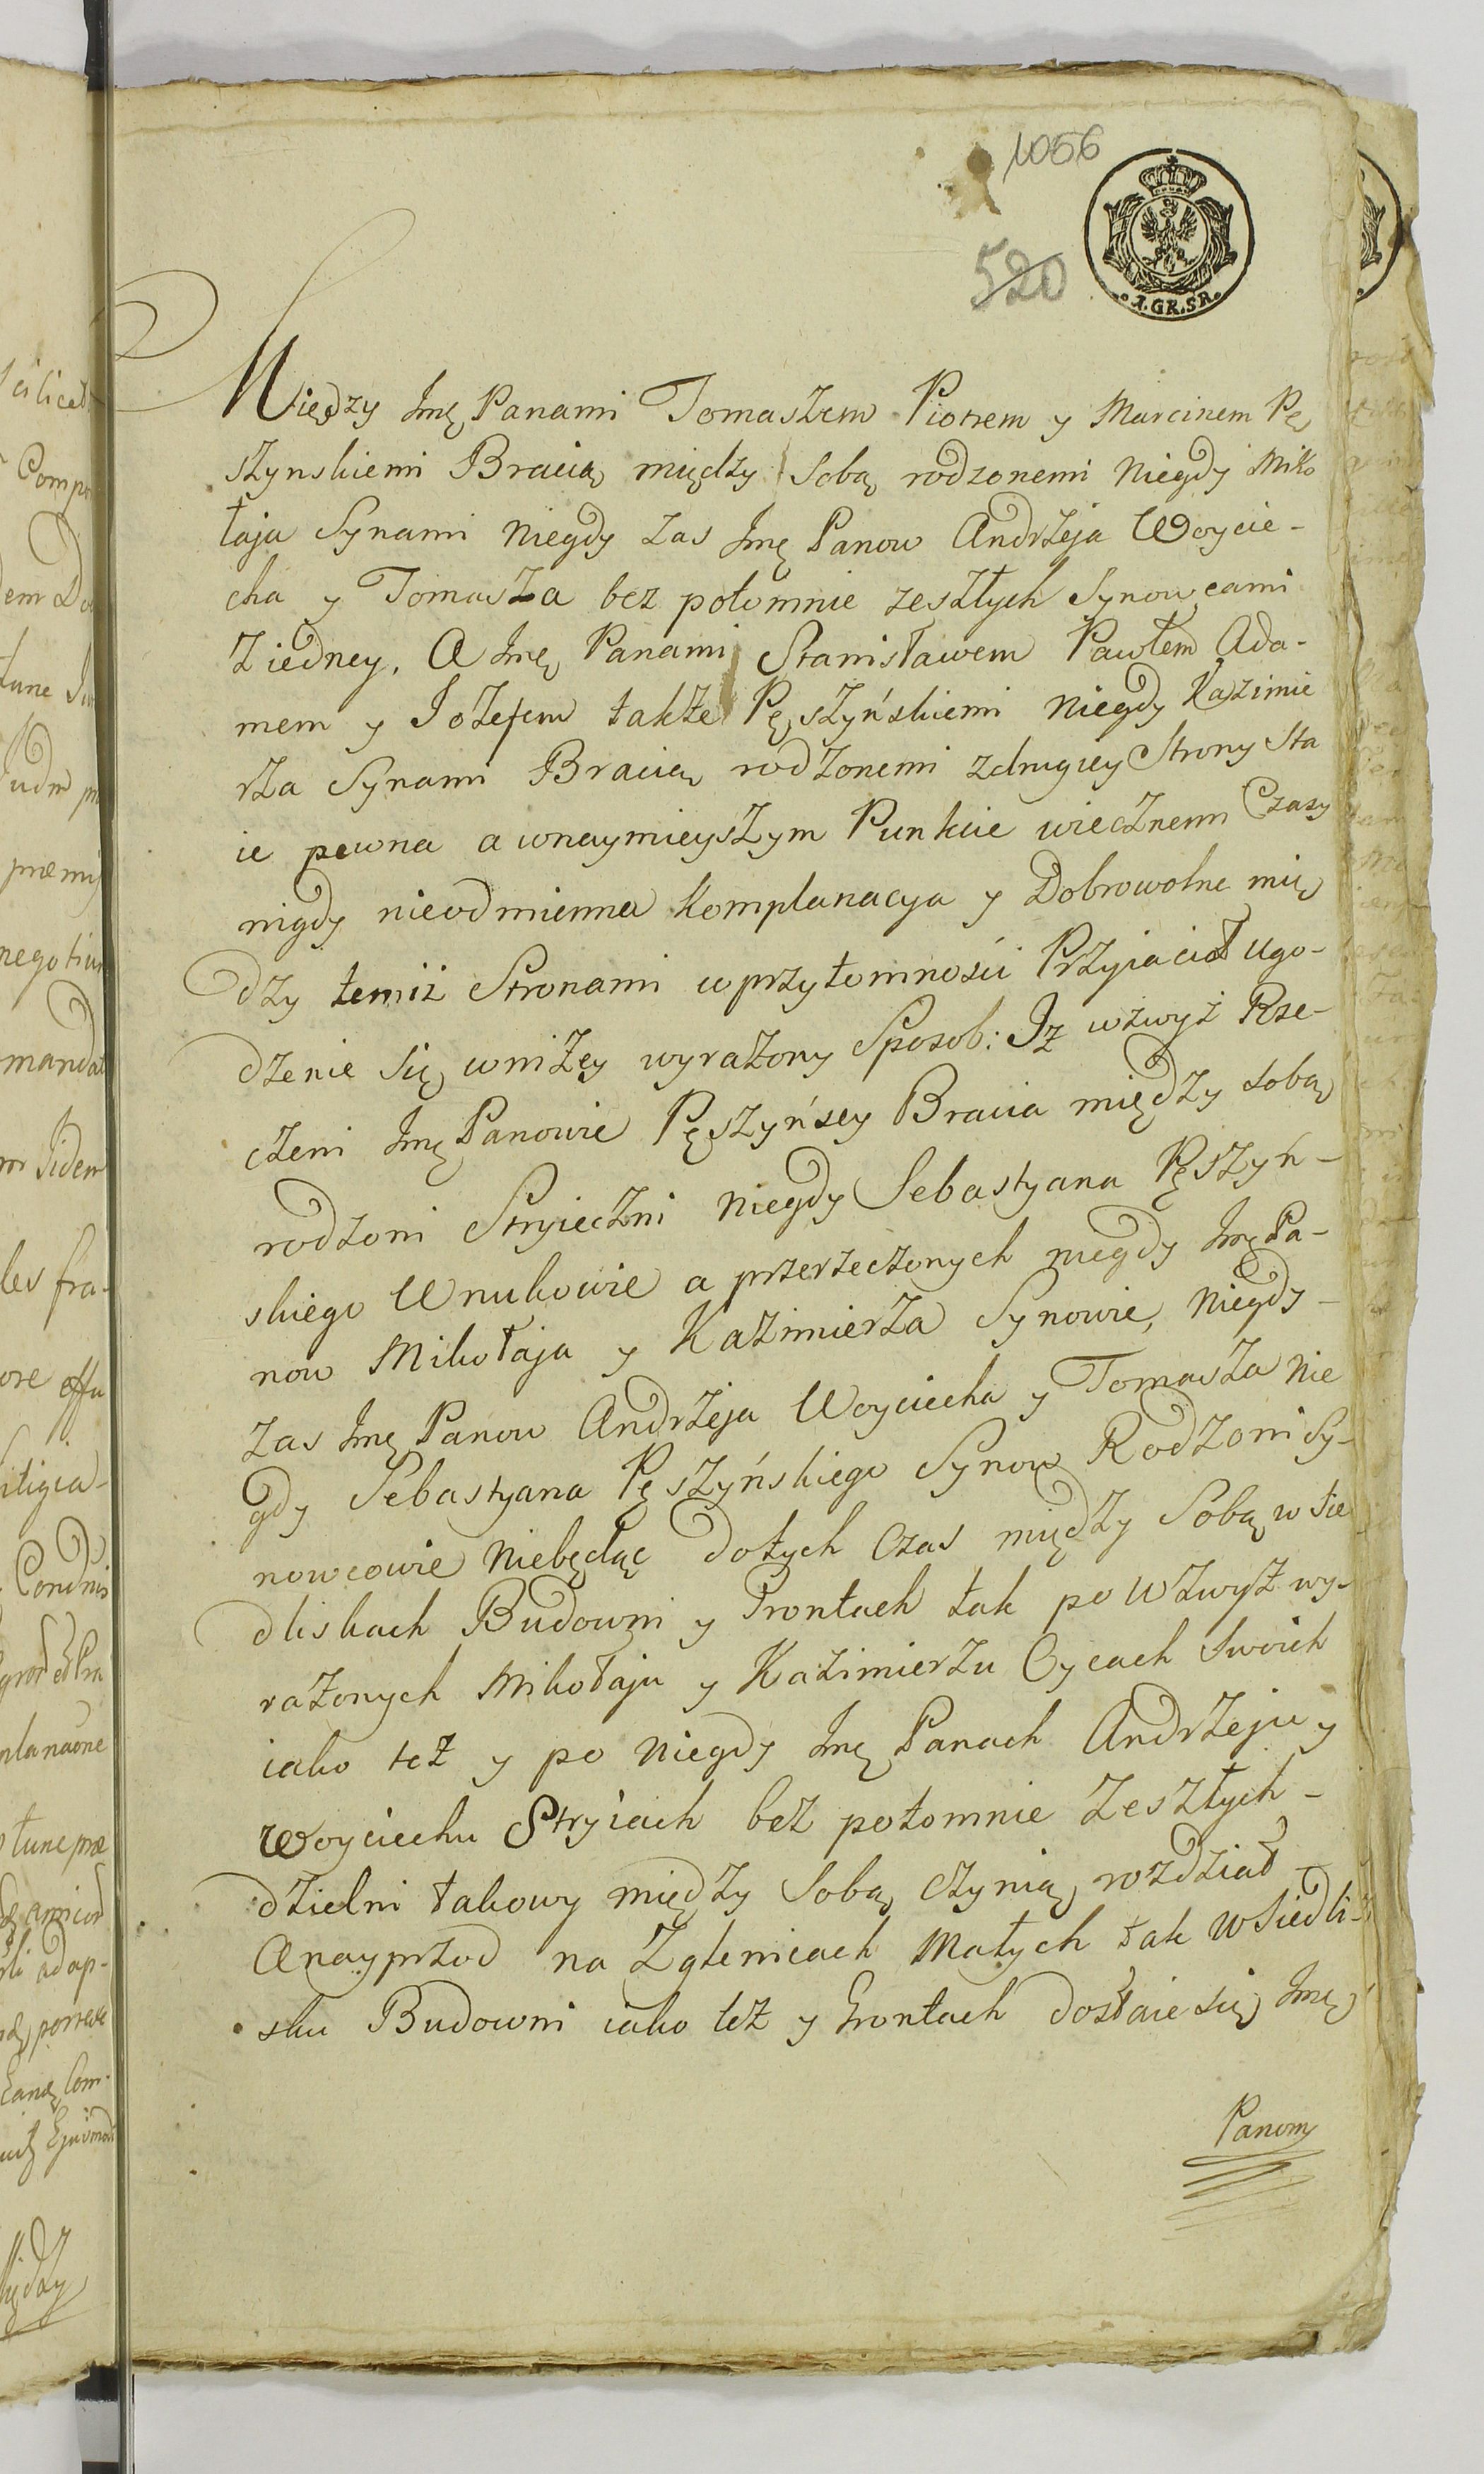 1056
520
1.GR.SR.
Między Jmę Panami Tomaszem Piotrem y Marcinem Pę
szynskiemi Bracią między Sobą rodzonemi niegdy Miko
łaja Synami niegdy zas Jmę Panow Andrzeja Woycie-
cha y Tomasza bez potomnie zeszłych Synowcami
Ziedney, A Jmę Panami Stanisławem Pawłem Ada-
mem y Jozefem także Pęszyńskiemi niegdy Kazimie
rza Synami Bracią rodzonemi zdrugiey Strony Sta
ie pewna a wnaymieyszym Punkcie wiecznemi Czasy
nigdy nieodmienna Komplanacya y Dobrowolne mię
dzy temiż Stronami wprzytomności Przyiacioł Ugo-
dzenie się wniżey wyrażony Sposob: Iż wzwyż Rze-
czeni Jmę Panowie Pęszyńscy Bracia między sobą
rodzoni Stryieczni niegdy Sebastyana Pęszyń-
skiego Wnukowie a przerzeczonych niegdy Jmę Pa-
now Mikołaja y Kazimierza Synowie, niegdy-
zas Jmę Panow Andrzeja Woyciecha y Tomasza nie
gdy Sebastyana Pęszyńskiego Synow Rodzoni Sy-
nowcowie niebędąc dotych czas między Sobą w Sie
dliskach Budowni y Grontach tak po wzwyż wy-
rażonych Mikołaju y Kazimierzu Oycach Swoich
iako też y po niegdy Jmę Panach Andrzeju y
Woyciechu Stryiach bez potomnie Zeszłych-
dzielni takowy między Sobą czynią rozdział
Anayprzod na Zglenicach Małych tak w Siedli-
sku Budowni iako też y Grontach dostaie się Jmę
Panom